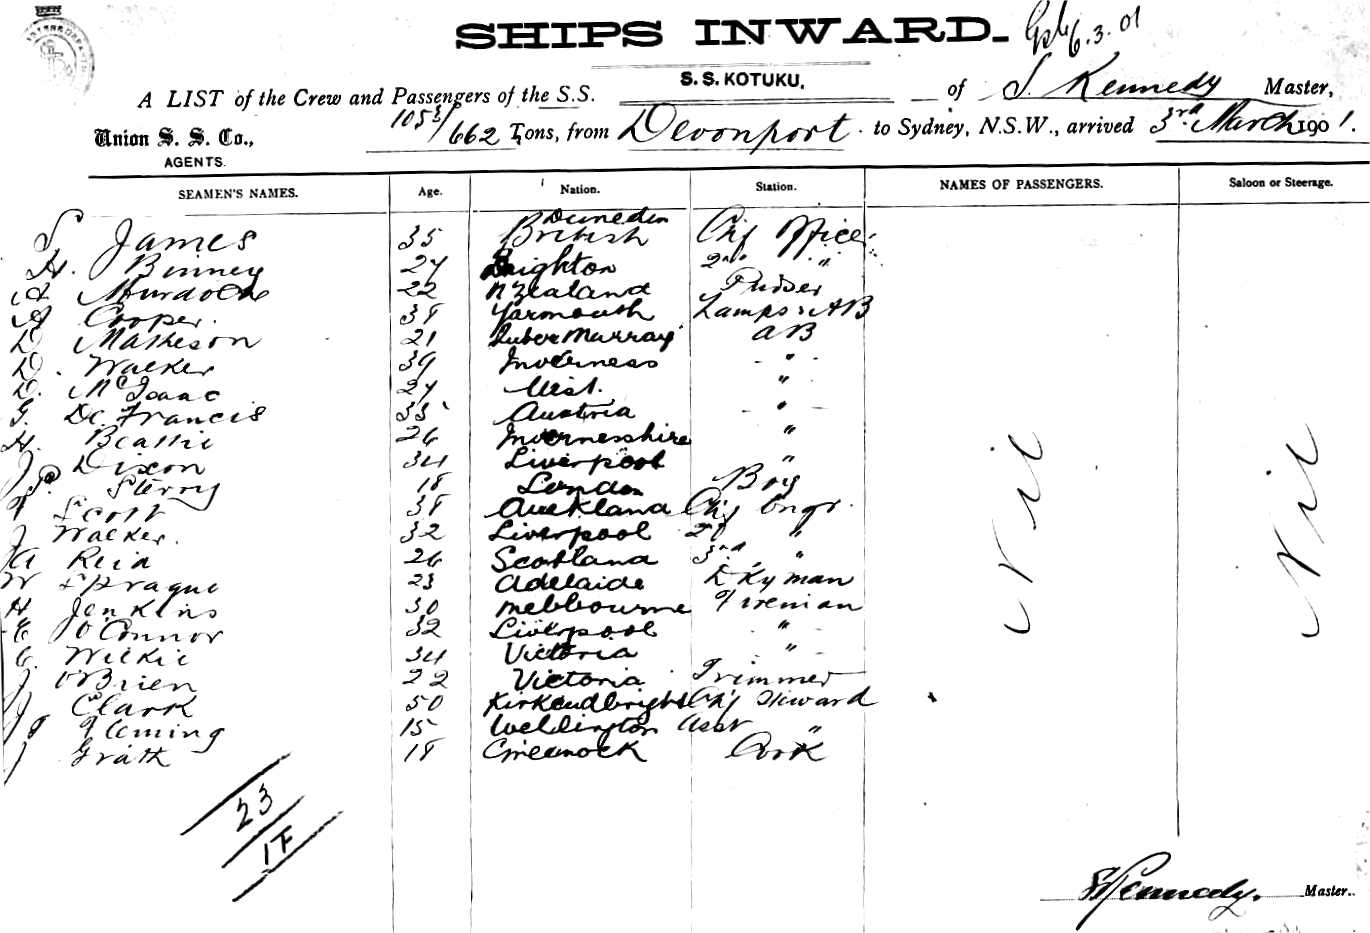 SHIPS INWARD.
6.3.01
S. S. KOTUKU,
A LIST of the Crew and Passengers of the S.S. of S. Kennedy Master,
Union S. S. Co., 1053/662 Tons, from Devonport to Sydney, N.S.W., arrived 3rd March 1901.
AGENTS.
SEAMEN'S NAMES. Age. Nation. Station. NAMES OF PASSENGERS. Saloon or Steerage.
Dunedin
S James 35 British Chf Officer
H. Binney 27 Brighton 2nd "
A Murdoch 22 N Zealand Purser
A Cooper. 38 Yarmouth Lamps & AB
D Matheson 21 Murray AB
D. Walker 39 Inverness - " -
D. McIsaac 27 Uist. "
G. De Francis 33 Austria - " -
H. Beattie 26 Invernesshire "
J Dixon 34 Liverpool "
P. Sterry 18 London Boy
Scott 38 Auckland Chf Engr.
J Walker. 32 Liverpool 2d "
A Reid 26 Scotland 3rd "
W Sprague 23 Adelaide Dkyman
H Jenkins 30 Melbourne Fireman
E O'Connor 32 Liverpool - " -
C. Wilkie 34 Victoria - " -
J O'Brien 22 Victoria Trimmer
J Clark 50 Kirkcudbright Chf Steward
J Fleming 15 Wellington Asst "
J Grath 18 Greenock Cook
Nil Nil
23
1F
S Kennedy. Master..